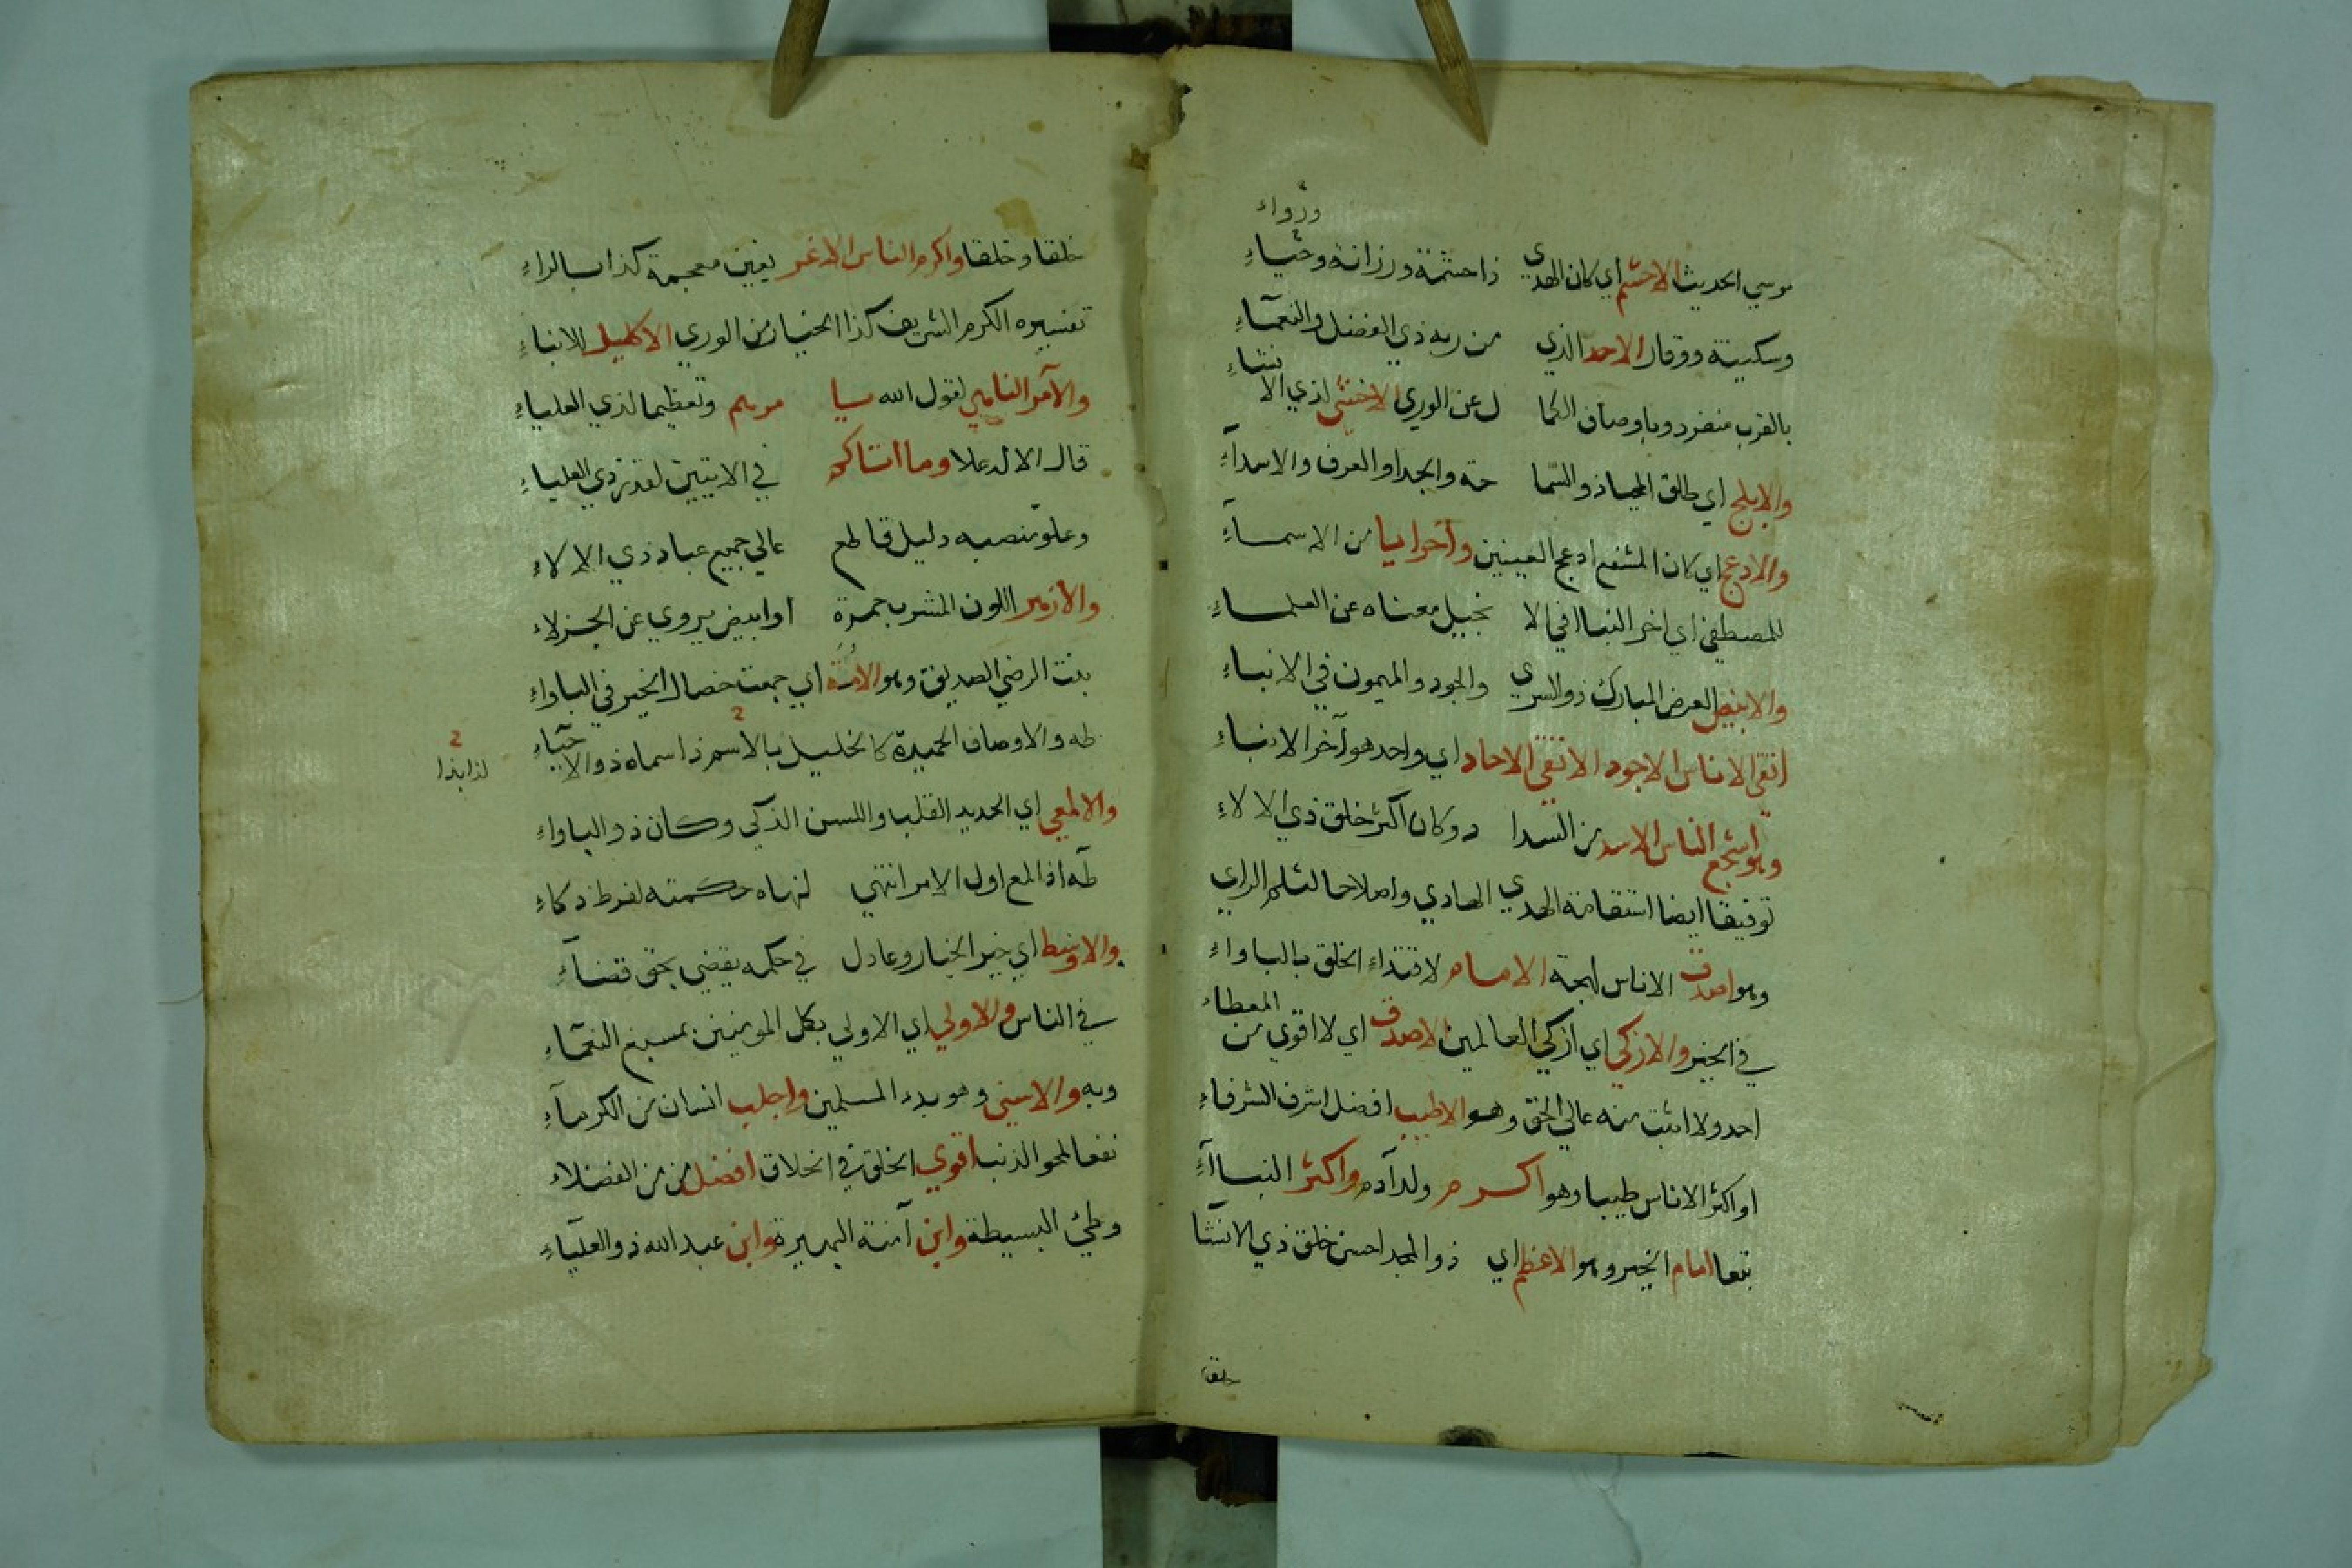 ورواء
موسي الحديث الاحشم أي كان الهدي ذا حشمة ورزانة وحياء
وسكينة ووقار الاحد الذي من ربه ذي الفضل والنعمآء
بالقرب منفرد وباوصاف الكما ل عن الوري الاخشي لذي الا نشاء
والابلج اي طلق المحيا ذو السما حة والجدا والعرف والاسدآء
والادعج اي كان المشفع ادعج العينين وآخرايا من الاسمآء
للمصطفي اي اخر النبا افي الا نجيل معناه عن العلماء
والابيض العرض المبارك ذو السري والجود والميمون في الانباء
اتقي الاناس الاجود الاتقي الاحاد اي واحد هو آخر الانباء
وهو اشجع الناس الاسد من السدا د وكان اكثر خلق ذي الالاء
توفيقا ايضا استقامة الهدي الهادي واصلاحا لثلم الراي
وهو اصدق الاناس لهجة الامام لاقتداء الخلق بالباواء
في الخير والازكي اي ازكي العالمين الاصدق اي لا اقوي من المعطاء
احد ولا اثبت منه عالي الحق وهو الاطيب افضل اشرف الشرفاء
او اكثر الاناس طيبا وهو اكرم ولد آدم واكثر النباآء
تبعا امام الخير وهو الاعظم اي ذو المجد احسن خلق ذي الانشا
خلقا
خلقا وخلقا واكرم الناس الاغر بغين معجمة كذا بالراء
تفسيره الكرم الشريف كذا الخيار من الوري الاكليل للانباء
والآمر الناهي لقول الله سيا مريم وتعظيما لذي العلياء
قال الاله علا وما اتاكم في الايتين لقدر ذي العلياء
وعلو منصبه دليل قاطع عالي جميع عباد ذي الالاء
والازهر اللون المشرب حمرة او ابيض يروي عن الجزلاء
بنت الرضي الصديق وهو الامة اي جمعت خصال الخير في الباواء
طه والاوصاف الحميدة كالخليل بالاسم ذا سماه ذو الاحيآء
لذا بذا
والالمعي اي الحديد القلب واللسن الذكي وكان ذو الباواء
طه اذا المع اول الامر انتهي لنهاه حكمته لفرط ذكاء
والاوسط اي خير الخيار وعادل في حكمه يقضي بحق قضآء
في الناس والاولي اي الاولي بكل المومنين بمسبغ النعمآء
وبه والاسني وهو بدء المسلمين واجلب انسان من الكرمآء
نفعا لمحو الذنب اقوي الخلق في اخلاق افضل من من الفضلاء
وطئ البسيطة وابن آمنة البهيرة وابن عبد الله ذو العليآء